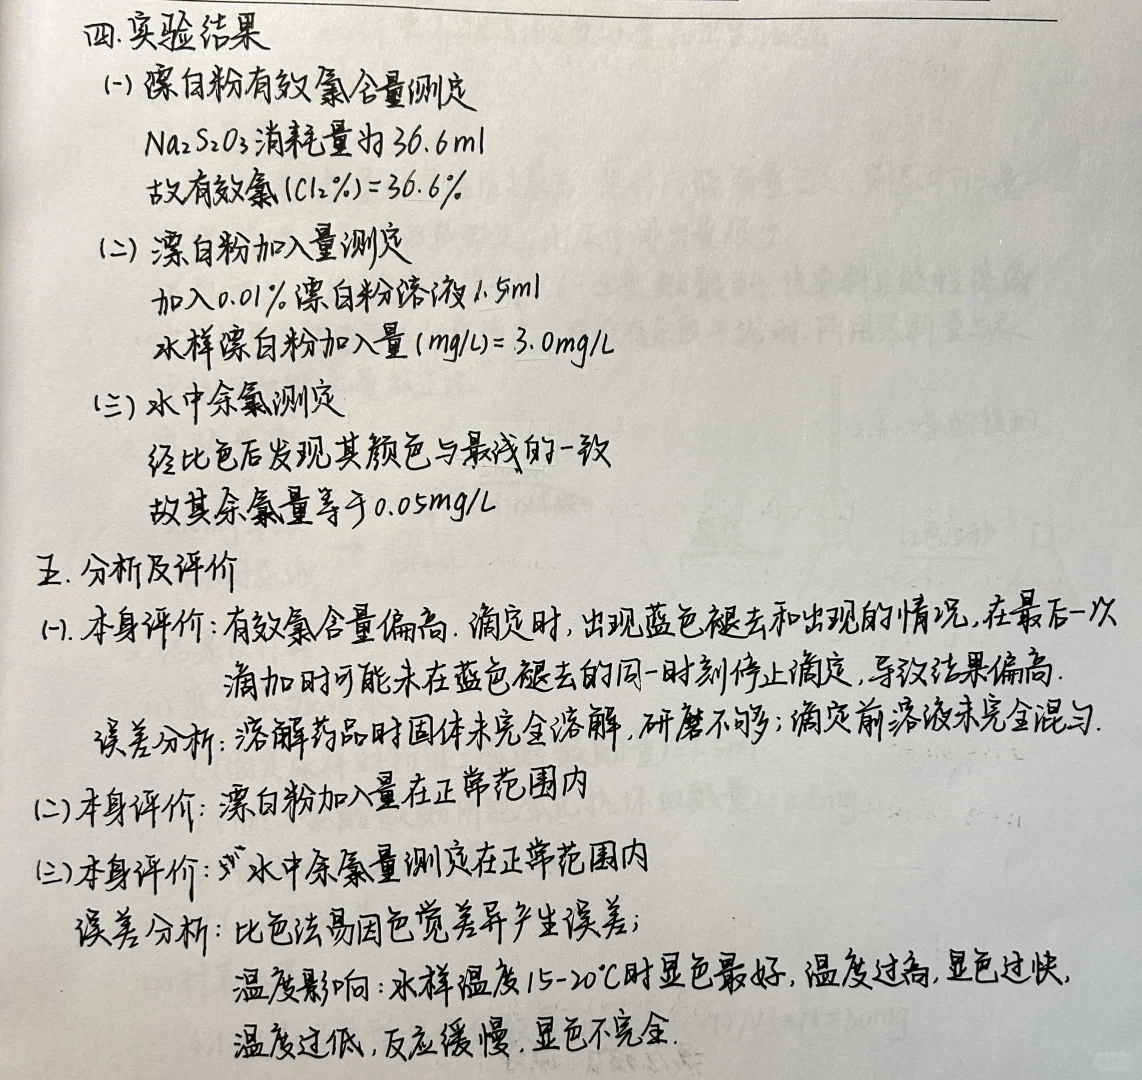 四.实验结果
(一)漂白粉有效氯含量测定
Na2S2O3消耗量为36.6ml
故有效氯(Cl2%)=36.6%
(二)漂白粉加入量测定
加入0.01%漂白粉溶液1.5ml
水样漂白粉加入量(mg/L)=3.0mg/L
(三)水中余氯测定
经比色后发现其颜色与最浅的一致
故其余氯量等于0.05mg/L
五.分析及评价
(一).本身评价:有效氯含量偏高.滴定时,出现蓝色褪去和出现的情况,在最后一次
滴加时可能未在蓝色褪去的同一时刻停止滴定,导致结果偏高.
误差分析:溶解药品时固体未完全溶解,研磨不够;滴定前溶液未完全混匀.
(二)本身评价:漂白粉加入量在正常范围内
(三)本身评价:水中余氯量测定在正常范围内
误差分析:比色法易因色觉差异产生误差;
温度影响:水样温度15-20℃时显色最好,温度过高,显色过快,
温度过低,反应缓慢,显色不完全.